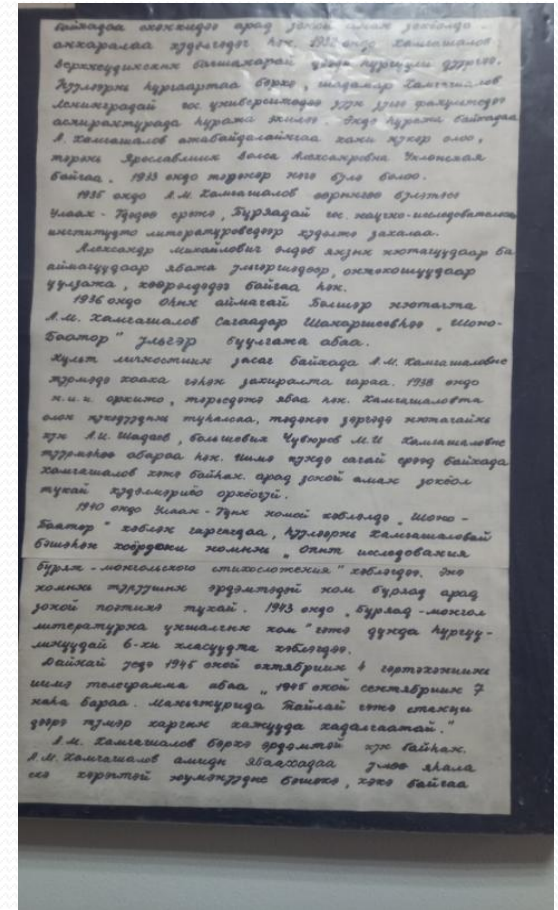 байхадаа ехэнхидээ арад зоной аман зохёолдо
анхаралаа хүдэлгэдэг һэн. 1932 ондо Хамгашалов
Верхнеудинскиин багшанарай дунда һургуули дүүргээ.
һүүлээрнь һургаартаа бэрхэ, шадамар Хамгашалов
Ленинградай гос. университедэй зүүн зүгэй факультедэй
аспирантурада һуража эхилээ. Эндэ һуража байхадаа
А. Хамгашалов атабайдалайнгаа хани нүхэр олоо,
тэрэнь Ярославлиин Волса Александровна Уклонская
байгаа. 1933 ондо тэдэнэр нэгэ бүлэ болоо.
1935 ондо А.М. Хамгашалов өөрынгөө бүлэтэеэ
Улаан-Үдэдөө ерэжэ, Буряадай гос. научно-исследовательск
институтто литературоведээр хүдэлжэ захалаа.
Александр Михайлович элдэб янзын нютагуудаар ба
аймагуудаар ябажа үльгэршэдээр, онтохошуудаар
уулзажа, хөөрэлдэдэг байгаа һэн.
1936 ондо Оһын аймагай Бэлшэр нютагта
А.М. Хамгашалов Сагаадар Шанаршеевһээ „Шоно-
Баатор" үльгэр буулгажа абаа.
Культ личностиин засаг байхада А.М. Хамгашаловые
түрмэдэ хааха гэһэн захиралта гараа. 1938 ондо
н.и.и. орхижо, тэрьедэжэ ябаа һэн. Хамгашаловта
олон нүхэдүүдынь туһалаа, тэдэнээ зэргэдэ нютагайнь
хүн А.И. Шадаев, большевик Чувюров М.И Хамгашаловые
түүрмэһөө абараа һэн. Иимэ хүндэ сагай ерээд байхада
Хамгашалов хэжэ байһан. арад зоной аман зохёол
тухай хүдэлмэриеэ орхёогүй.
1940 ондо Улаан-Үдын номой хэблэлдэ „Шоно-
Баатор" хэблэн гаргагдаа, һүүлээрнь Хамгашаловай
бэшэһэн хоёрдохи номынь „Опыт исследования
бурят-монгольского стихосложения" хэблэгдээ. Энэ
номынь түрүүшын эрдэмтэдэй ном буряад арад
зоной поэтикэ тухай. 1943 ондо „Буряад-монгол
литературна уншалгын ном" гэжэ дунда һургуу-
линуудай 6-хи класууудта хэблэгдээ.
Дайнай үедэ 1945 оной октябриин 4 гэртэхэниинь
иимэ телеграмма абаа „1945 оной сентябриин 7
наһа бараа. Маньчжурида Тайлай гэжэ станцы
дээрэ түмэр харгын хажууда хадалгаатай."
А.М. Хамгашалов бэрхэ эрдэмтэй хүн байһан.
А.М. Хамгашалов амиды ябаахадаа үлөө яһала
ехэ хэрэгтэй юумэнүүдые бэшэжэ, хэжэ байгаа